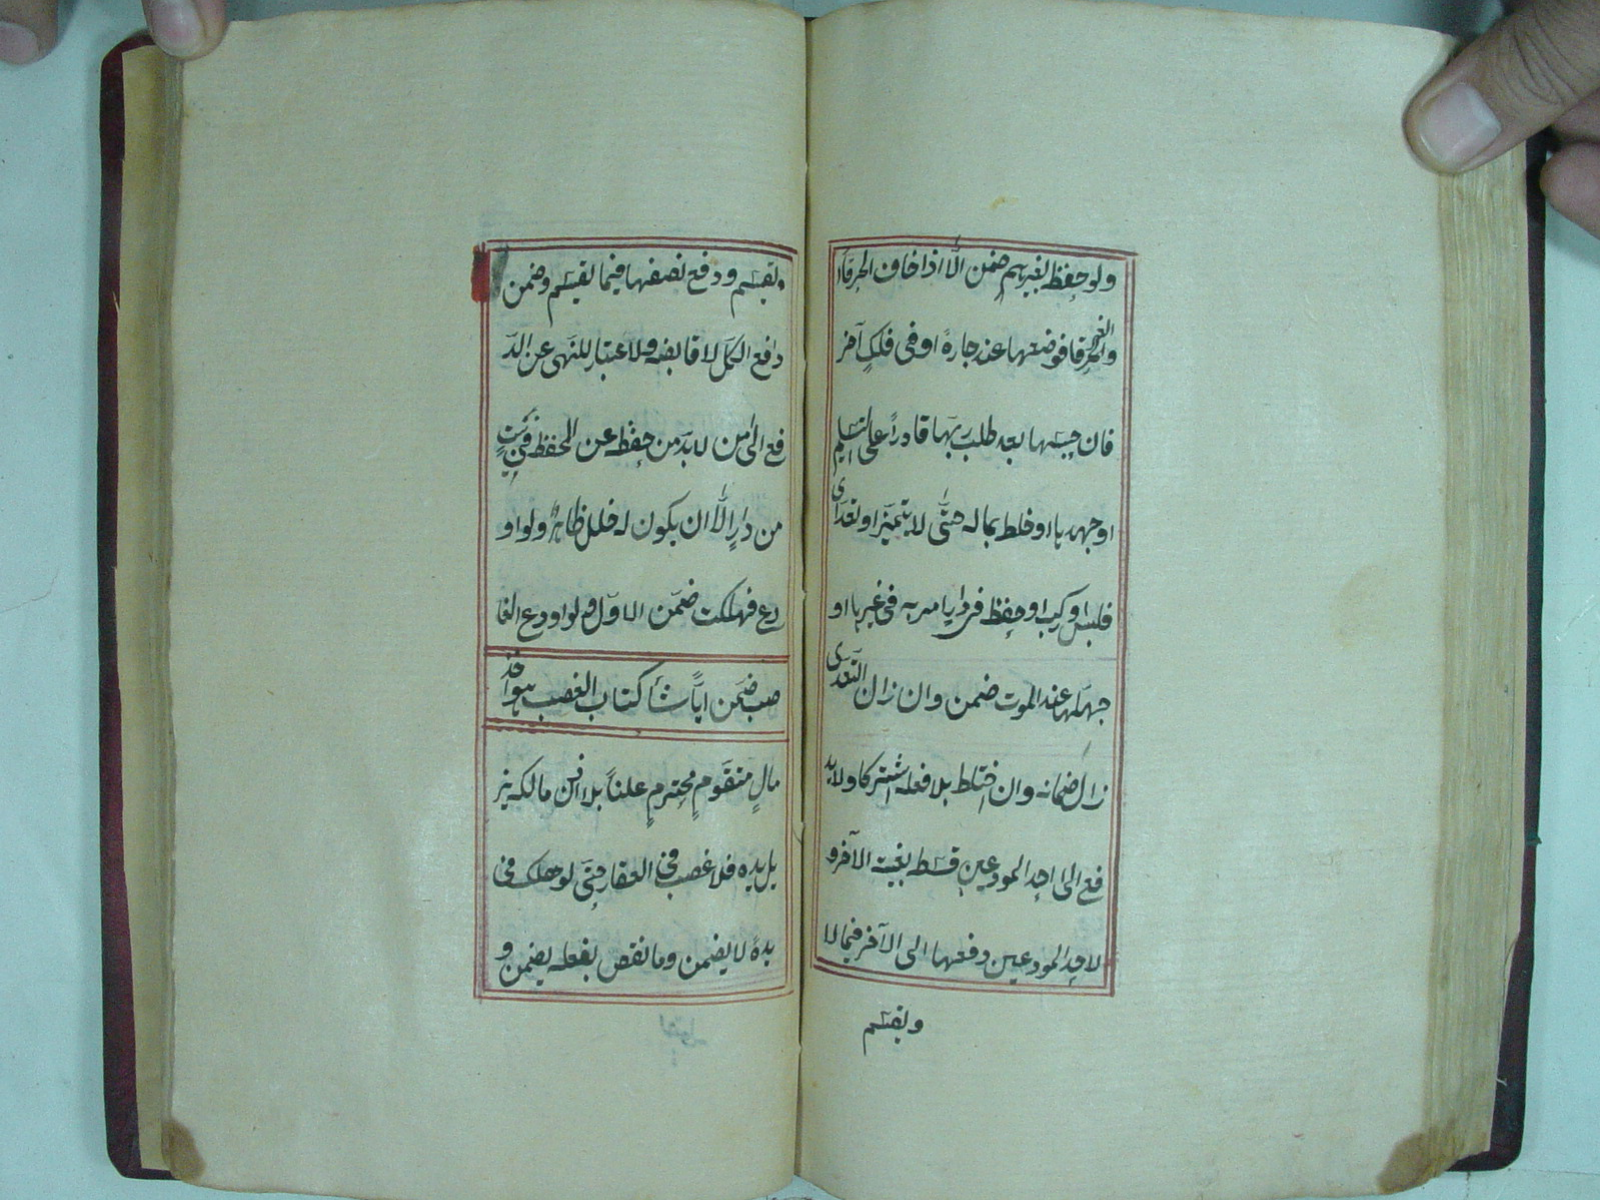 ولو حفظ بغيرهم ضمن الا اذا خاف الحرق او
الغرق فوضعها عند جاره او فى فلك آخر
فان حبسها بعد طلب ربها قادراً على التسليم
او جهدها او خلط بماله حتى لا يتميز او تعدى
فلبس او ركب او حفظ فى دار امر به فى غيرها او
جهلها عند الموت ضمن وان زال التعدى
زال ضمانه وان اختلط بلا فعله اشتركا ولا يد
فع الى احد المودعين قسط بغيبة الآخر و
لاحد المودعين دفعها الى الآخر فيما لا
ويقسم
يقسم ودفع نصفها فيما يقسم وضمن
دافع الكل لا قابضه ولا اعتبار للنهى عن الد
فع الى من لا بد من حفظه عن الحفظ فى بيت
من دارٍ الا ان يكون له خلل ظاهر ولو او
دع فهلكت ضمن الاول ولو اودع الغا
صب ضمن ايًّا شاء كتاب الغصب هو اخذ
مالٍ متقومٍ محترمٍ علناً بلا اذن مالكه يز
يل يده فلا غصب فى العقار حتى لو هلك فى
يده لا يضمن وما نقص بفعله يضمن و